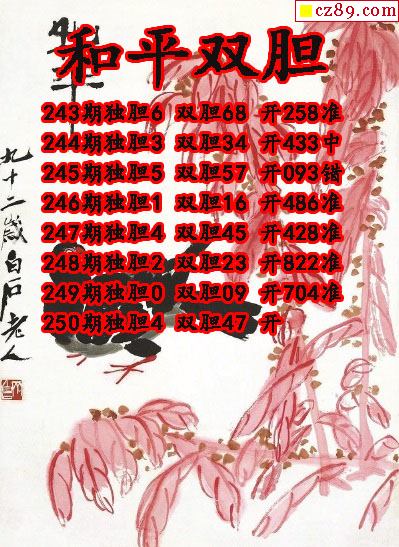 cz89.com
和平双胆
243期独胆6 双胆68 开258准
244期独胆3 双胆34 开433中
245期独胆5 双胆57 开093错
246期独胆1 双胆16 开486准
247期独胆4 双胆45 开428准
248期独胆2 双胆23 开822准
249期独胆0 双胆09 开704准
250期独胆4 双胆47 开
九十二岁白石老人